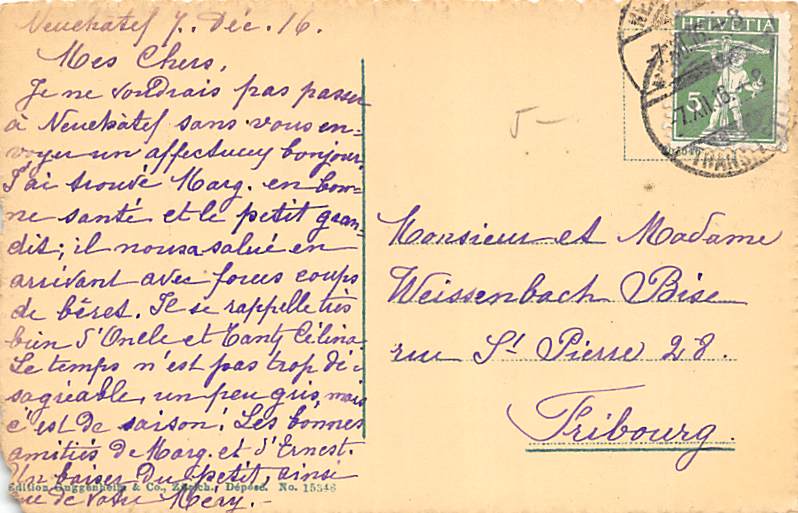 Neuchâtel 7. Déc. 16.
Mes Chers,
Je ne voudrais pas passer
à Neuchâtel sans vous en-
voyer un affectueux bonjour.
J'ai trouvé Marg. en bon-
ne santé et le petit gran-
dit; il nous a salué en
arrivant avec force coups
de béret. Il se rappelle très
bien d'Oncle et Tanty Célina.
Le temps n'est pas trop dé-
sagréable, un peu gris, mais
c'est de saison! Les bonnes
amitiés de Marg. et d'Ernest.
Un baiser du petit, ainsi
que de votre Méry.-
Edition Guggenheim & Co., Zürich., Déposé. No. 15346
HELVETIA
5
-7.XII.16.-8
TRANS
5-
Monsieur et Madame
Weissenbach Bise
rue St Pierre 28.
Fribourg.